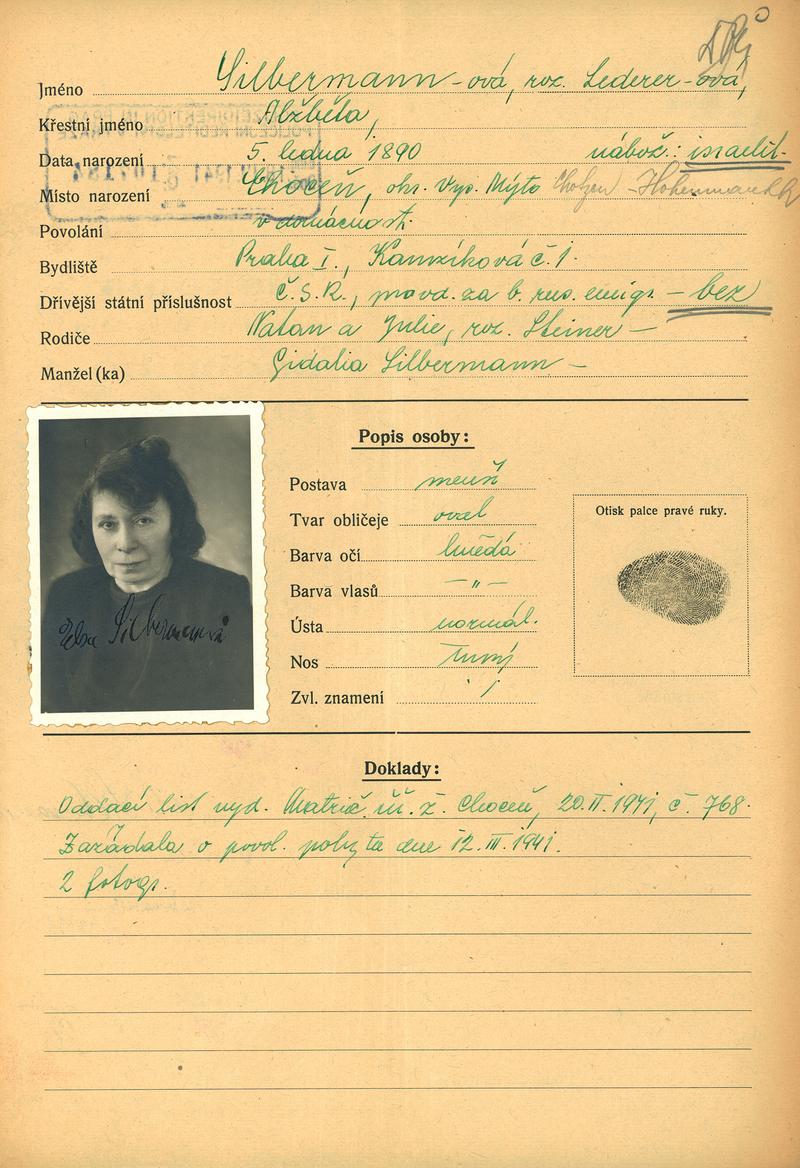 Jméno Silbermann-ová, roz. Lederer-ová,
Křestní jméno Alžběta,
Data narození 5. ledna 1890 nábož.: israelit.
Místo narození Choceň, okr. Vys. Mýto Chotzen - Hohenmauth
Povolání v domácnosti.
Bydliště Praha I., Kamzíková č 1.
Dřívější státní příslušnost Č.S.R., pravd. za b. rus. emigr. - bez
Rodiče Natan a Julie, roz. Steiner -
Manžel (ka) Gidalia Silbermann -
Popis osoby:
Postava menší
Tvar obličeje oval
Barva očí hnědá
Barva vlasů -"-
Ústa normál.
Nos
Zvl. znamení /
Otisk palce pravé ruky.
Elsa Silbermannová
Doklady:
Oddací list vyd. Matrič. úř. ž. Choceň, 20.II.1941, č. 768.
Zažádala o povol. pobytu dne 12.III.1941.
2 fotogr.